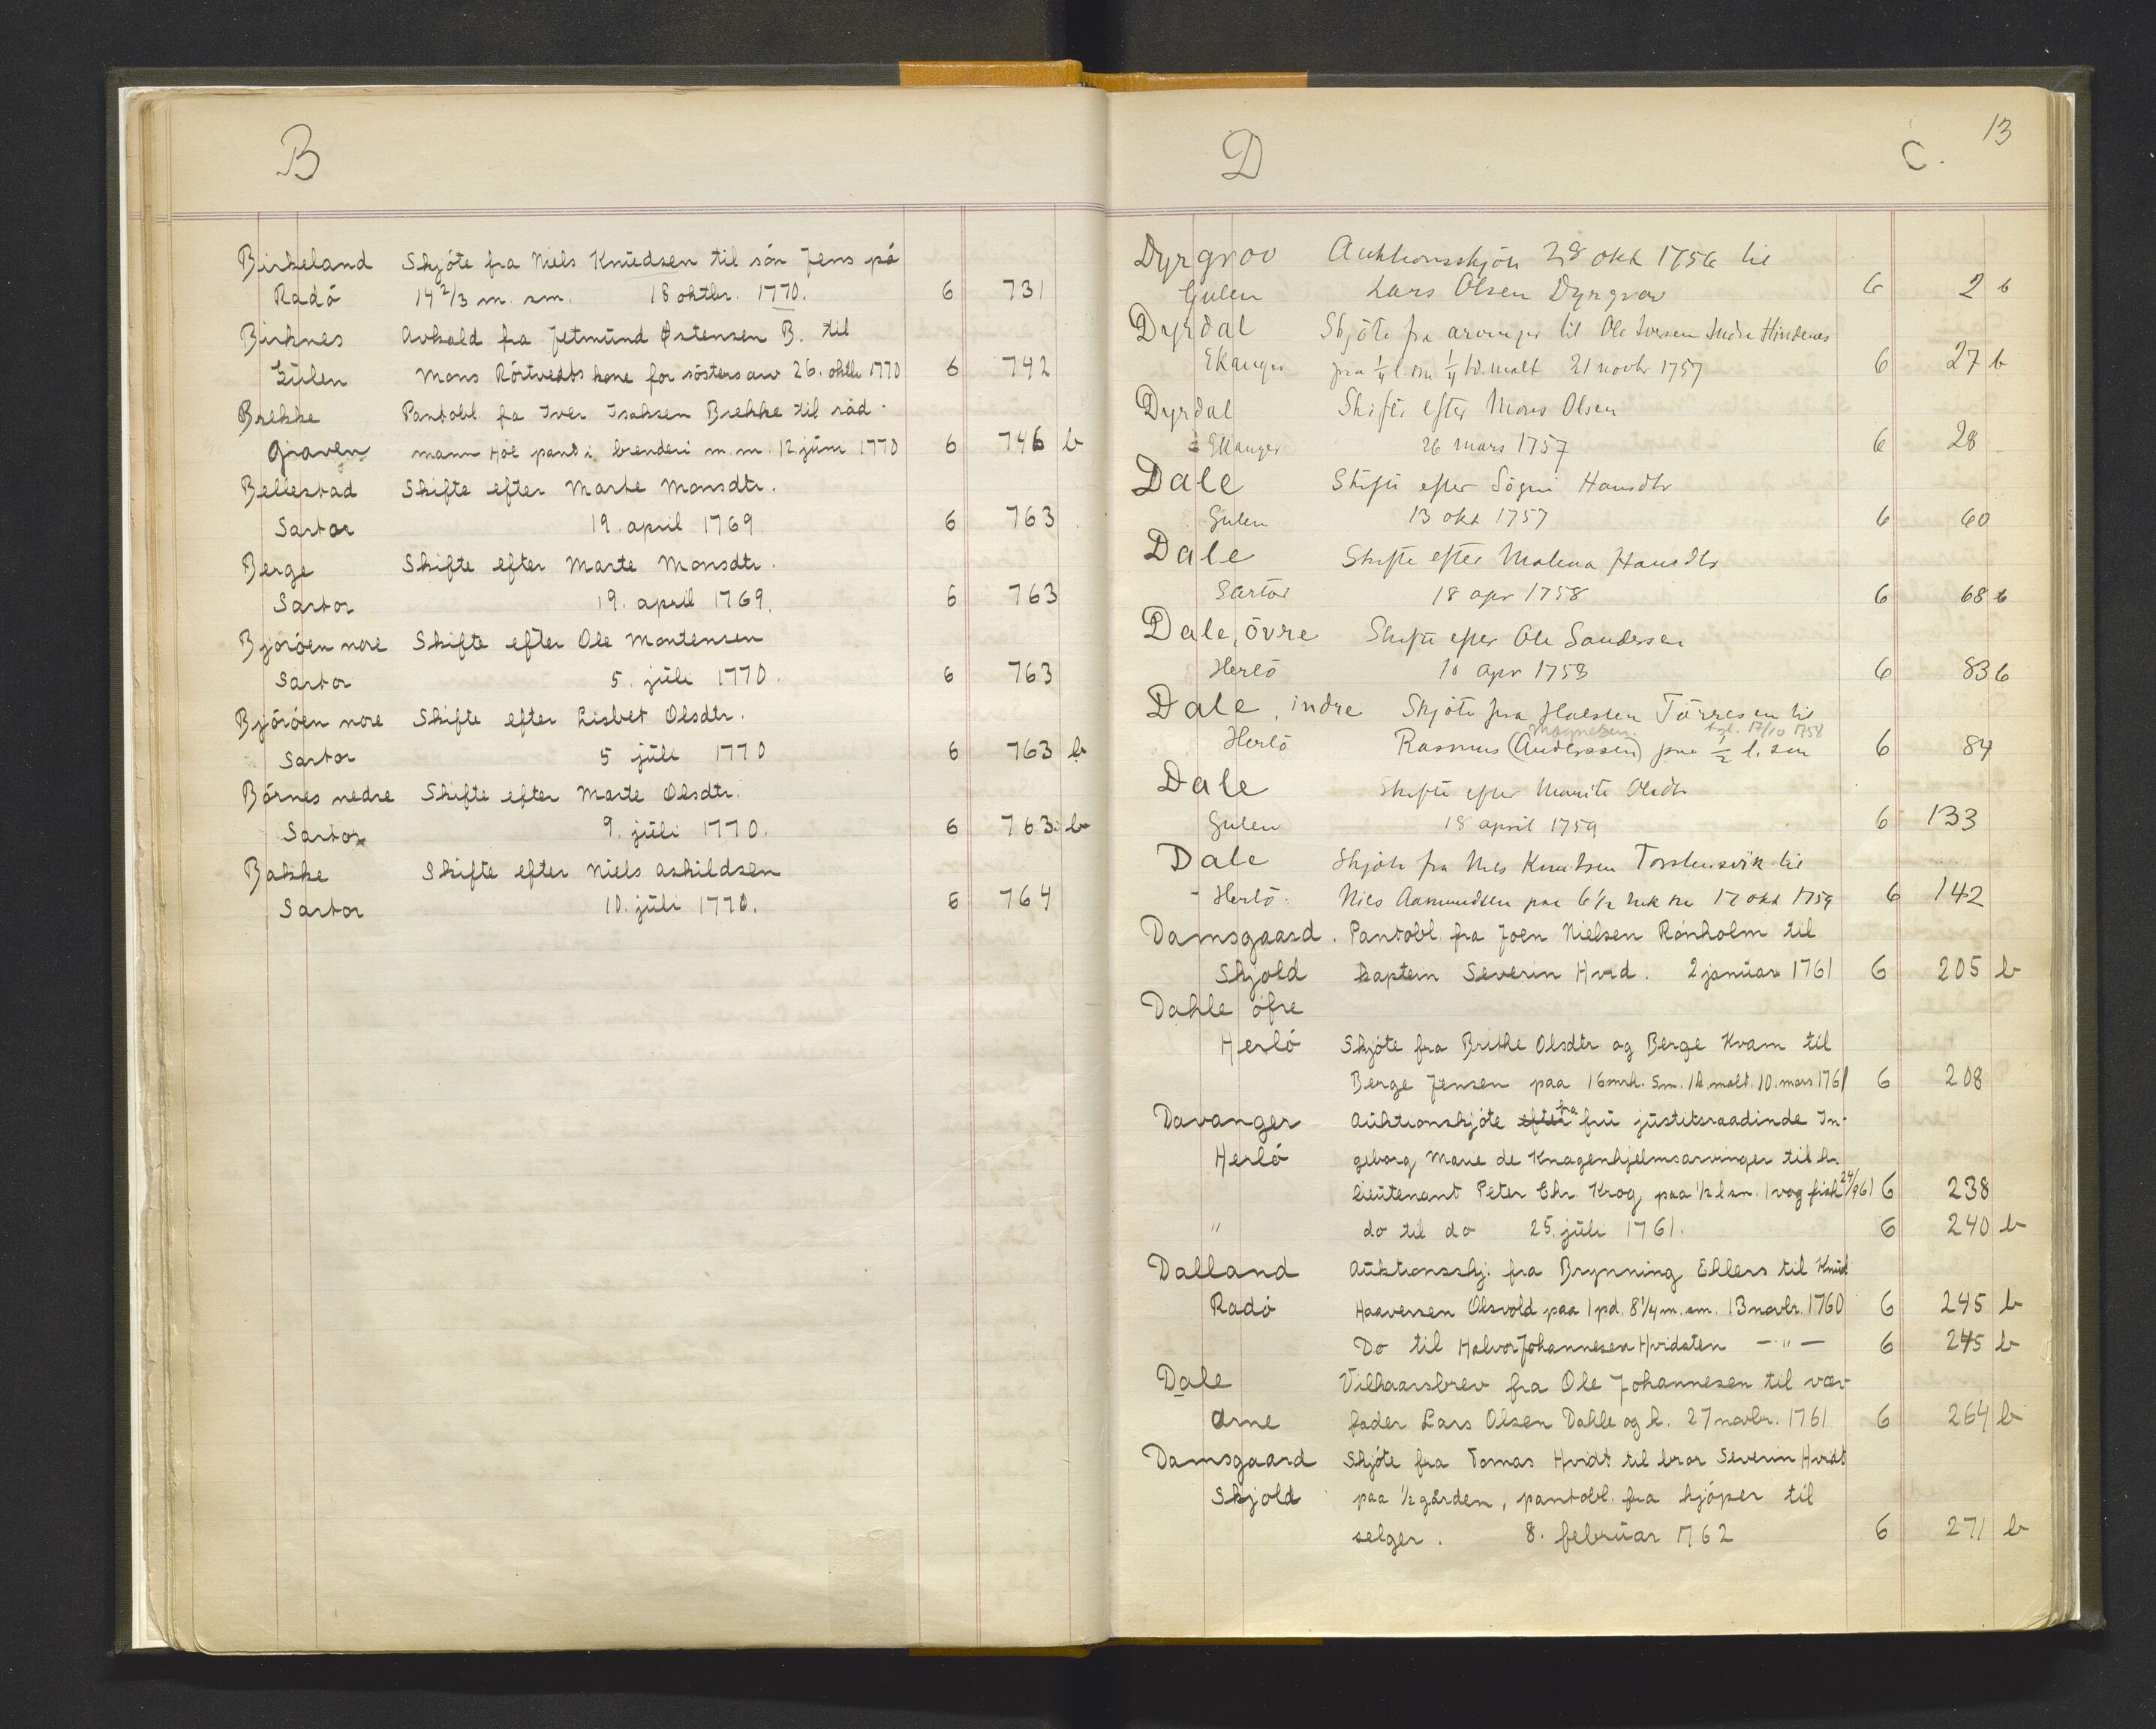 B
Birkeland Skjöte fra Niels Knudsen til sön Jens på
Radö 14 2/3 m. sm. 18 oktbr. 1770. 6 731
Birknes Avkald fra Jetmund Østensen B. til
Gulen Mons Rörtvedts kone for söstersarv 26. oktb 1770 6 742
Brekke Pantobl. fra Iver Isaksen Brekke til råd-
Graven mann Hoe pant i brenderi m. m. 12. juni 1770 6 746 b
Bellestad Skifte efter Marte Monsdtr.
Sartor 19. april 1769. 6 763
Berge Skifte efter Marte Monsdtr.
Sartor 19. april 1769. 6 763
Bjoröen nore Skifte efter Ole Mortensen
Sartor 5. juli 1770. 6 763
Björöen nore Skifte efter Lisbet Olsdtr.
Sartor 5 juli 1770 6 763 b
Börnes nedre Skifte efter Marte Olsdtr.
Sartor 9. juli 1770. 6 763 b
Bakke Skifte efter Niels Askildsen
Sartor 10. juli 1770. 6 764
D C. 13
Dyrgrov Auktionsskjöte 28 okt 1756 til
Gulen Lars Olsen Dyrgrov 6 2 b
Dyrdal Skjöte fra arvinger til Ole Iversen Indre Hindenes
Ekanger paa 1/4 l. sm 1/4 td. malt 21 novbr 1757 6 27 b
Dyrdal Skifte efter Mons Olsen
Ekanger 26 mars 1757 6 28
Dale Skifte efter Sögni Hansdtr
Gulen 13 okt 1757 6 60
Dale Skifte efter Malena Hansdtr
Sartor 18 apr 1758 6 68 b
Dale, övre Skifte efter Ole Sanderssen
Herlö 10 apr 1758 6 83 b
Dale, indre Skjöte fra Halsten Törresen til
Magnesen tgl. 17/10 1758
Herlö Rasmus (Anderssen) paa 1/2 l. sm 6 84
Dale Skifte efter Marite Olsdtr
Gulen 18 april 1759 6 133
Dale Skjöte fra Nils Knutsen Torsteinsvik til
Herlö Nils Aamundsen paa 6 1/2 mrk sm 17 okt 1759 6 142
Damsgaard. Pantobl. fra Joen Nielsen Rönholm til
Skjold kaptein Severin Hvid. 2 januar 1761 6 205 b
Dahle öfre
Herlö Skjöte fra Brithe Olsdtr og Berge Kvam til
Berge Jensen paa 16 mrk. sm. 1 h. malt. 10. mars 1761 6 208
Davanger Auktionskjöte efter fra fru justitsraadinde In-
Herlö geborg Marie de Knagenhjelmsarvinger til hr.
lieutenant Peter Chr. Krog, paa 1/2 l sm. 1 vog fisk 24/9 61 6 238
" do til do 25. juli 1761. 6 240 b
Dalland Auktionsskj. fra Brynning Ehlers til Knud
Radö Haaversen Olsvold paa 1 pd. 8 1/4 m. sm. 13 novbr. 1760 6 245 b
Do til Halvor Johannesen Hvidsten — " — 6 245 b
Dale Vilkaarsbrev fra Ole Johannesen til vær-
Arne fader Lars Olsen Dahle og h. 27 novbr. 1761 6 264 b
Damsgaard Skjöte fra Tomas Hvidt til bror Severin Hvidt
Skjold paa 1/2 gården, pantobl. fra kjöper til
selger. 8. februar 1762 6 271 b